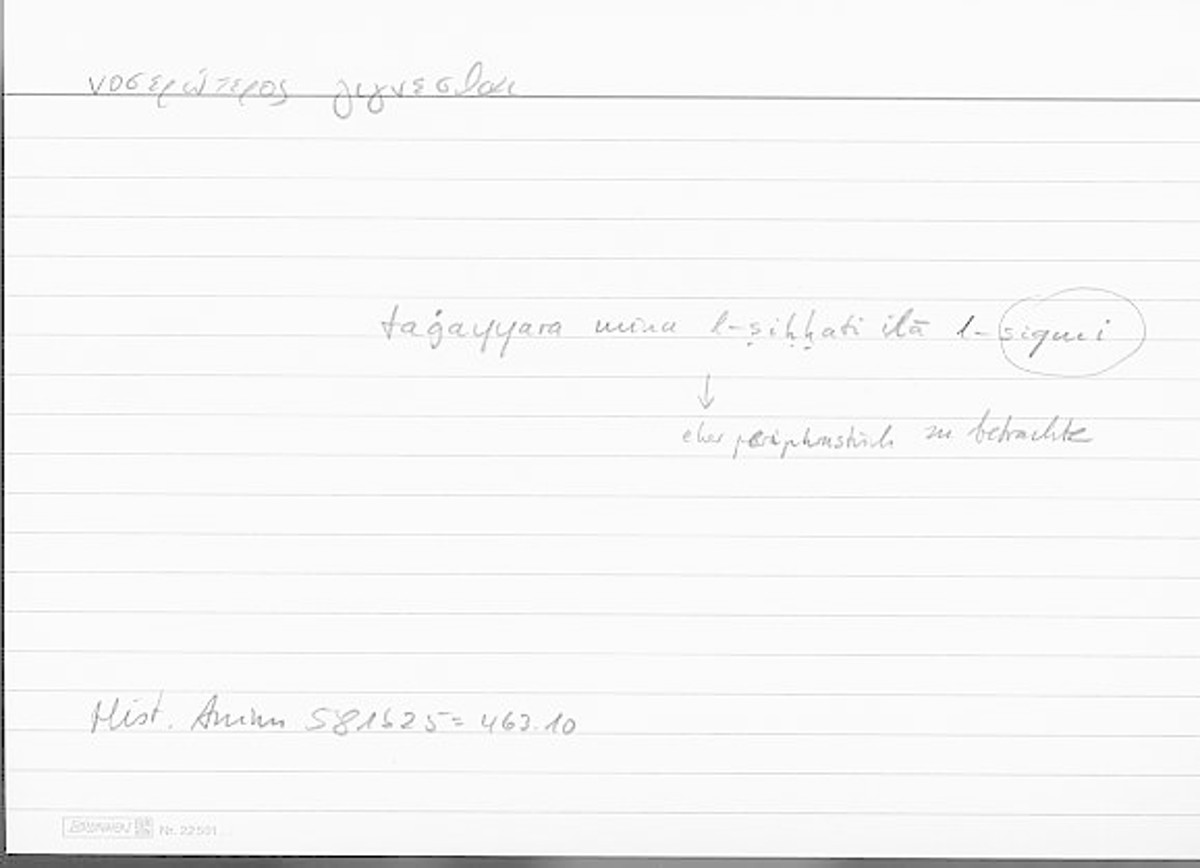 νοσερώτερος γιγνεσθαι
taġayyara mina l-ṣiḥḥati ilā l-siqmi
↓
eher periphrastisch zu betrachte
Hist. Anim 581b25 = 463.10
BRUNNEN Nr. 22501